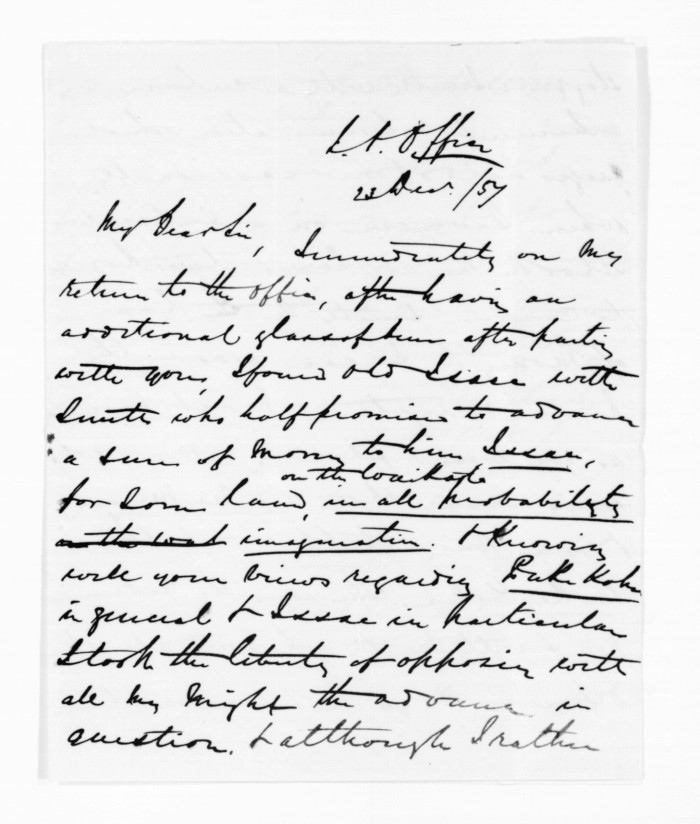 L. P. Office
23 Decr. /57
My Dear Sir, Immediately on my
return to the office, after having an
additional glass of beer after parting
with you, I found Old Isaac with
Smith who half promised to advance
a sum of Money to him Issac,
on the Waikato
for some land, in all probability
imagination. & Knowing
well your views regarding
in general & Issac in particular
I took the liberty of opposing with
all my might the advance in
question. & although I rather